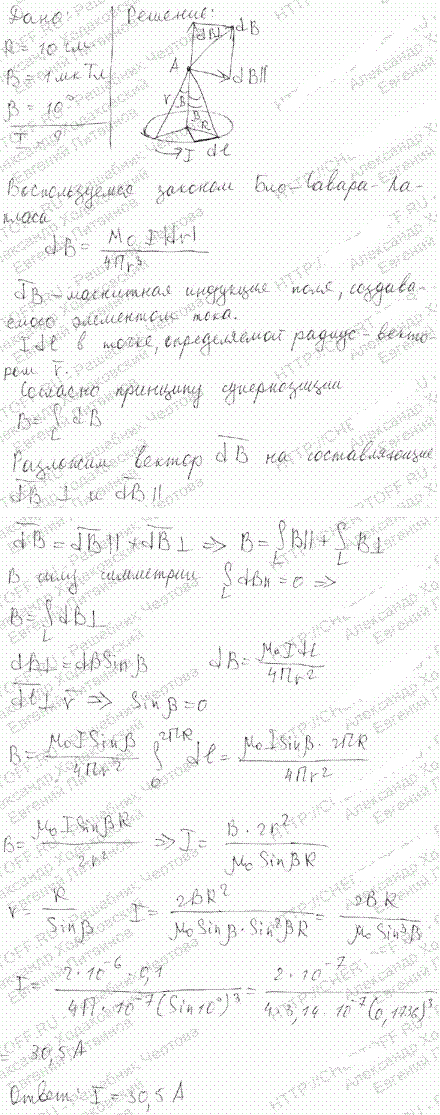 Дано:
Решение:
R = 10 см
B = 1 мкТл
β = 10°
I - ?
dB⊥ dB
A
dB||
r β
β R
I dl
Воспользуемся законом Био-Савара-Ла-
пласа
dB = μ₀I|dl r| / 4πr³
dB - магнитная индукция поля, создава-
емого элементом тока.
I dl в точке, определяемой радиус-векто-
ром r.
Согласно принципу суперпозиции
B = ∫_L dB
Разложим вектор dB на составляющие
dB⊥ и dB||
dB = dB|| + dB⊥ => B = ∫_L B|| + ∫_L B⊥
В силу симметрии ∫_L dB|| = 0 =>
B = ∫_L dB⊥
dB⊥ = dB Sin β dB = μ₀I dl / 4πr²
dl ⊥ r => Sin β = 0
B = μ₀I Sin β / 4πr² ∫_0^2πR dl = μ₀I Sin β · 2πR / 4πr²
B = μ₀I Sin β R / 2r² => I = B · 2r² / μ₀ Sin β R
r = R / Sin β I = 2BR² / μ₀ Sin β · Sin² β R = 2BR / μ₀ Sin³ β
I = 2 · 10⁻⁶ · 0,1 / 4π · 10⁻⁷ (Sin 10°)³ = 2 · 10⁻⁷ / 4 × 3,14 · 10⁻⁷ (0,1736)³
= 30,5 A
Ответ: I = 30,5 A